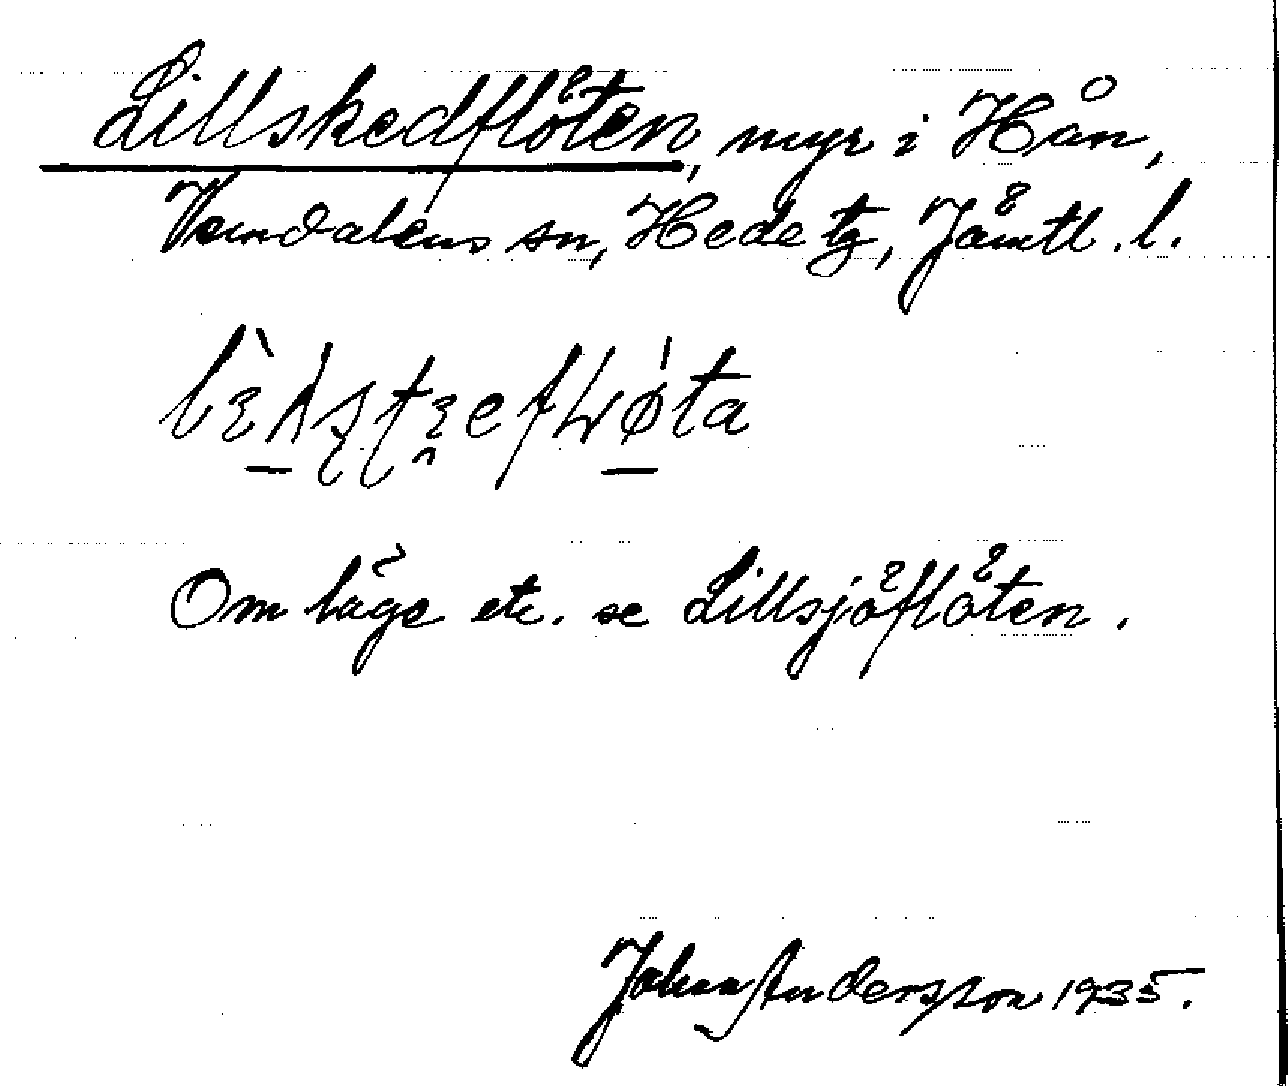 Lillskedflöten, myr i Hån,
Vemdalens sn, Hede tg, Jämtl. l.
Om läge etc. se Lillsjöflöten.
John Andersson 1935.